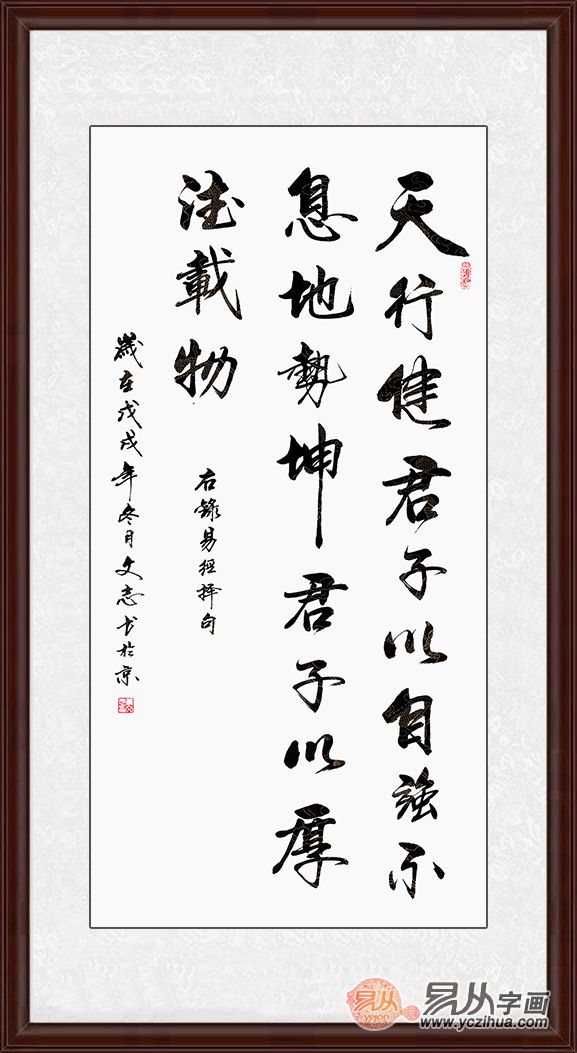 天行健君子以自強不
息地勢坤君子以厚
德載物
右錄易經擇句
歲在戊戌年冬月文志书於京
易从
yejon
易从字画
www.yczihua.com